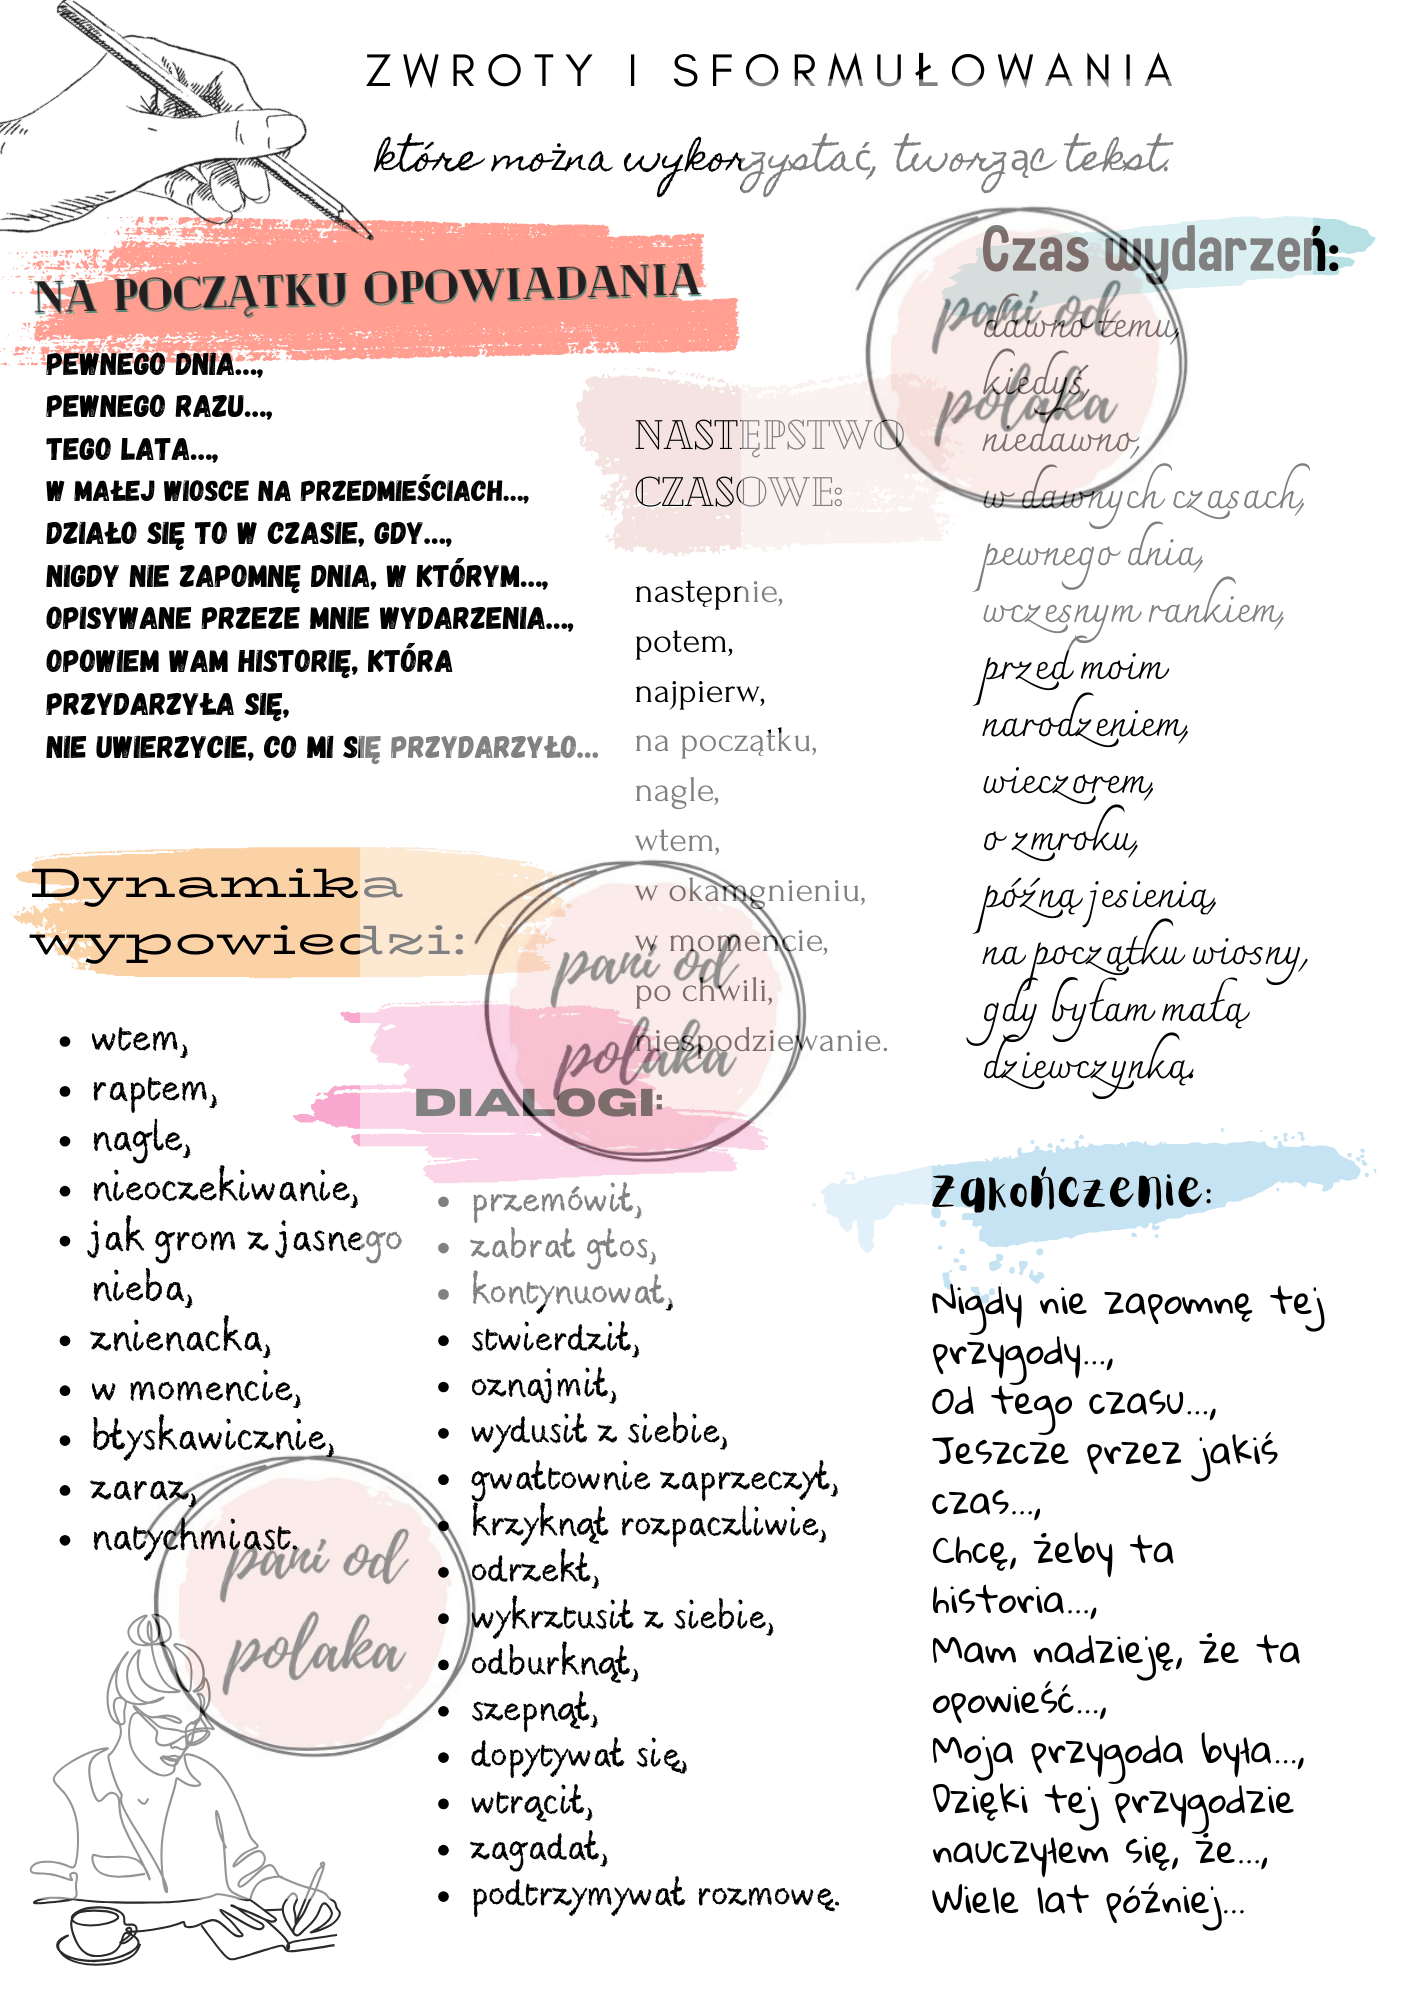 ZWROTY I SFORMUŁOWANIA
które można wykorzystać, tworząc tekst.
NA POCZĄTKU OPOWIADANIA
PEWNEGO DNIA...,
PEWNEGO RAZU...,
TEGO LATA...,
W MAŁEJ WIOSCE NA PRZEDMIEŚCIACH...,
DZIAŁO SIĘ TO W CZASIE, GDY...,
NIGDY NIE ZAPOMNĘ DNIA, W KTÓRYM...,
OPISYWANE PRZEZE MNIE WYDARZENIA...,
OPOWIEM WAM HISTORIĘ, KTÓRA
PRZYDARZYŁA SIĘ,
NIE UWIERZYCIE, CO MI SIĘ PRZYDARZYŁO...
NASTĘPSTWO
CZASOWE:
następnie,
potem,
najpierw,
na początku,
nagle,
wtem,
w okamgnieniu,
w momencie,
po chwili,
niespodziewanie.
Czas wydarzeń:
dawno temu,
kiedyś,
niedawno,
w dawnych czasach,
pewnego dnia,
wczesnym rankiem,
przed moim
narodzeniem,
wieczorem,
o zmroku,
późną jesienią,
na początku wiosny,
gdy byłam małą
dziewczynką.
pani od
polaka
Dynamika
wypowiedzi:
• wtem,
• raptem,
• nagle,
• nieoczekiwanie,
• jak grom z jasnego
nieba,
• znienacka,
• w momencie,
• błyskawicznie,
• zaraz,
• natychmiast.
pani od
polaka
DIALOGI:
• przemówił,
• zabrał głos,
• kontynuował,
• stwierdził,
• oznajmił,
• wydusił z siebie,
• gwałtownie zaprzeczył,
• krzyknął rozpaczliwie,
• odrzekł,
• wykrztusił z siebie,
• odburknął,
• szepnął,
• dopytywał się,
• wtrącił,
• zagadał,
• podtrzymywał rozmowę.
pani od
polaka
Zakończenie:
Nigdy nie zapomnę tej
przygody...,
Od tego czasu...,
Jeszcze przez jakiś
czas...,
Chcę, żeby ta
historia...,
Mam nadzieję, że ta
opowieść...,
Moja przygoda była...,
Dzięki tej przygodzie
nauczyłem się, że...,
Wiele lat później...